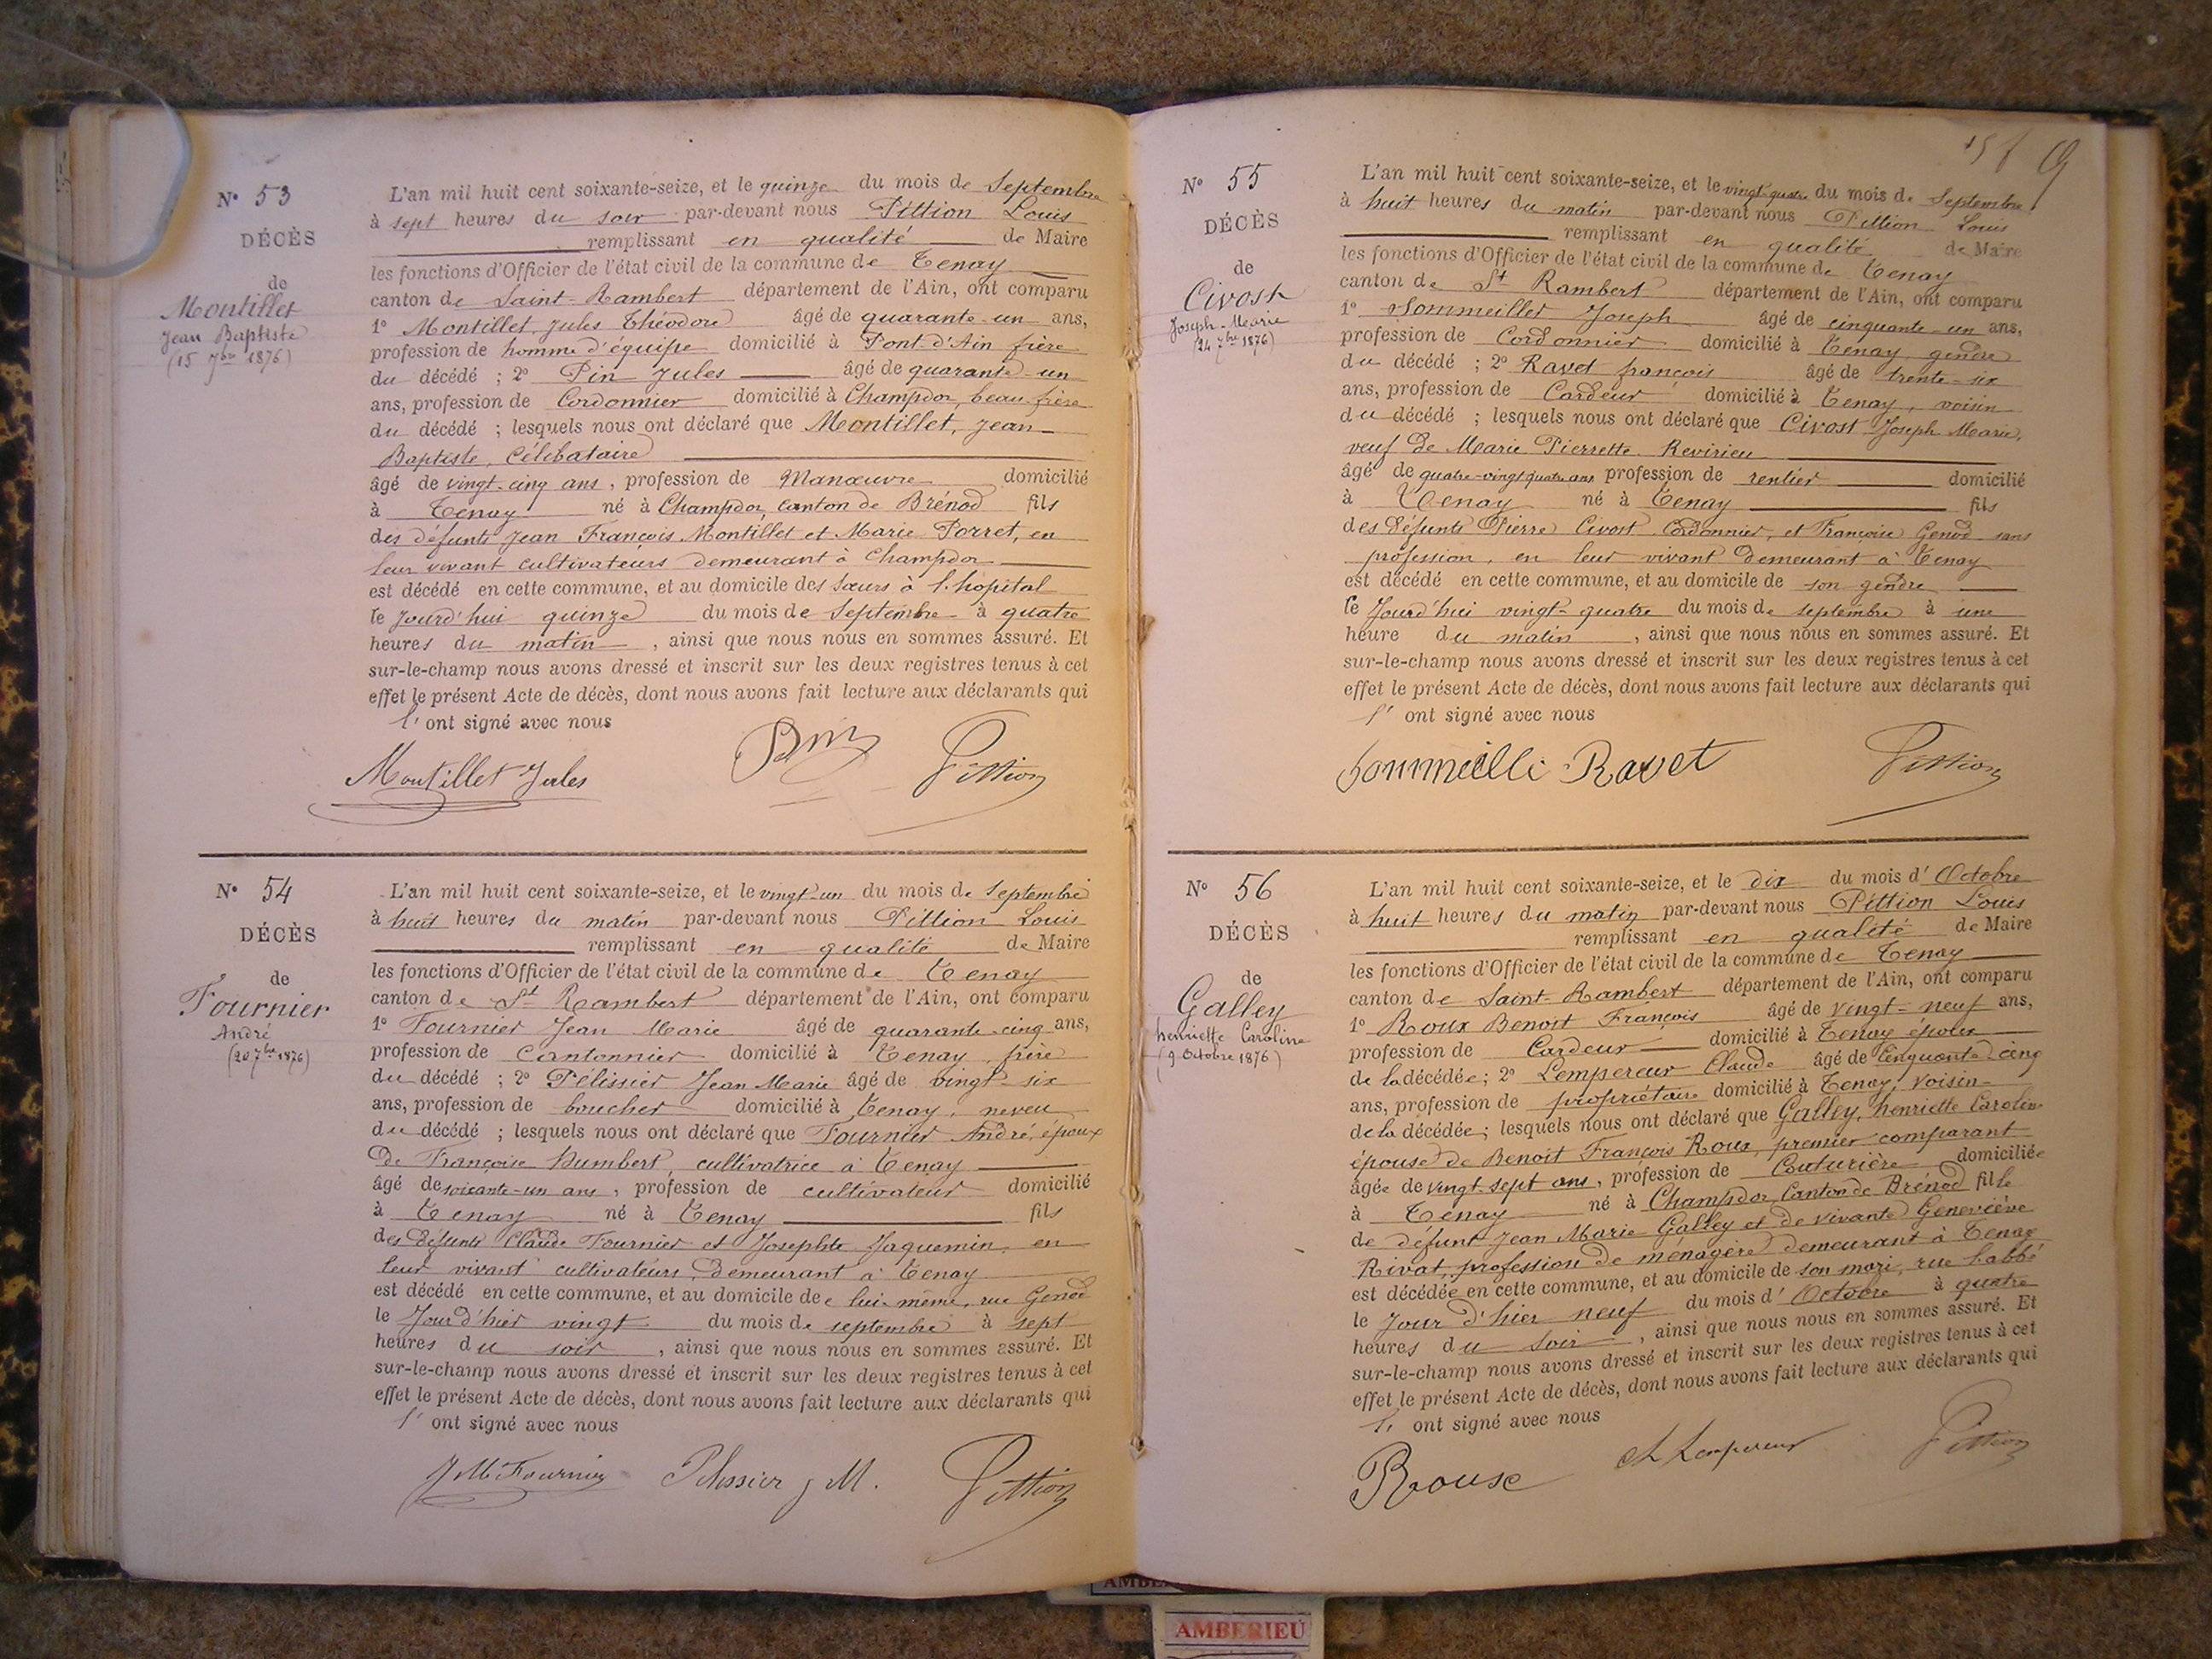 N° 53
DÉCÈS
de
Montillet
Jean Baptiste
(15 7bre 1876)
L'an mil huit cent soixante-seize, et le quinze du mois de Septembre
à sept heures du soir par-devant nous Pittion Louis
remplissant en qualité de Maire
les fonctions d'Officier de l'état civil de la commune de Tenay
canton de Saint-Rambert département de l'Ain, ont comparu
1° Montillet, Jules Théodore âgé de quarante-un ans,
profession de homme d'équipe domicilié à Pont-d'Ain frère
du décédé ; 2° Pin Jules âgé de quarante-un
ans, profession de Cordonnier domicilié à Champdor, beau-frère
du décédé ; lesquels nous ont déclaré que Montillet, Jean-
Baptiste, Célibataire
âgé de vingt-cinq ans, profession de Manœuvre domicilié
à Tenay né à Champdor, canton de Brénod fils
des défunts Jean François Montillet et Marie Porret, en
leur vivant cultivateurs demeurant à Champdor
est décédé en cette commune, et au domicile des sœurs à l'hopital
le jourd'hui quinze du mois de Septembre à quatre
heures du matin, ainsi que nous nous en sommes assuré. Et
sur-le-champ nous avons dressé et inscrit sur les deux registres tenus à cet
effet le présent Acte de décès, dont nous avons fait lecture aux déclarants qui
l'ont signé avec nous
Montillet Jules Pin Pittion
N° 54
DÉCÈS
de
Fournier
André
(20 7bre 1876)
L'an mil huit cent soixante-seize, et le vingt-un du mois de Septembre
à huit heures du matin par-devant nous Pittion Louis
remplissant en qualité de Maire
les fonctions d'Officier de l'état civil de la commune de Tenay
canton de St Rambert département de l'Ain, ont comparu
1° Fournier Jean Marie âgé de quarante-cinq ans,
profession de Cantonnier domicilié à Tenay, frère
du décédé ; 2° Pélissier Jean Marie âgé de vingt-six
ans, profession de boucher domicilié à Tenay, neveu
du décédé ; lesquels nous ont déclaré que Fournier André, époux
de Françoise Humbert, cultivatrice à Tenay
âgé de soixante-un ans, profession de cultivateur domicilié
à Tenay né à Tenay fils
des défunts Claude Fournier et Josephte Jaquemin, en
leur vivant cultivateurs, demeurant à Tenay
est décédé en cette commune, et au domicile de lui-même, rue Genod
le Jour d'hier vingt du mois de septembre à sept
heures du soir, ainsi que nous nous en sommes assuré. Et
sur-le-champ nous avons dressé et inscrit sur les deux registres tenus à cet
effet le présent Acte de décès, dont nous avons fait lecture aux déclarants qui
l'ont signé avec nous
J M Fournier Pélissier J M. Pittion
N° 55
DÉCÈS
de
Civost
Joseph-Marie
(24 7bre 1876)
L'an mil huit cent soixante-seize, et le vingt-quatre du mois de Septembre
à huit heures du matin par-devant nous Pittion Louis
remplissant en qualité de Maire
les fonctions d'Officier de l'état civil de la commune de Tenay
canton de St Rambert département de l'Ain, ont comparu
1° Sommeillet Joseph âgé de cinquante-un ans,
profession de Cordonnier domicilié à Tenay, gendre
du décédé ; 2° Ravet françois âgé de trente-six
ans, profession de Cardeur domicilié à Tenay, voisin
du décédé ; lesquels nous ont déclaré que Civost Joseph Marie,
veuf de Marie Pierrette Revirieu
âgé de quatre-vingt quatre ans profession de rentier domicilié
à Tenay né à Tenay fils
des défunts Pierre Civost Cordonnier, et Françoise Genod sans
profession, en leur vivant demeurant à Tenay
est décédé en cette commune, et au domicile de son gendre
le Jourd'hui vingt-quatre du mois de septembre à une
heure du matin, ainsi que nous nous en sommes assuré. Et
sur-le-champ nous avons dressé et inscrit sur les deux registres tenus à cet
effet le présent Acte de décès, dont nous avons fait lecture aux déclarants qui
l'ont signé avec nous
Sommeilli Ravet Pittion
N° 56
DÉCÈS
de
Galley
henriette Caroline
(9 Octobre 1876)
L'an mil huit cent soixante-seize, et le dix du mois d'Octobre
à huit heures du matin par-devant nous Pittion Louis
remplissant en qualité de Maire
les fonctions d'Officier de l'état civil de la commune de Tenay
canton de Saint-Rambert département de l'Ain, ont comparu
1° Roux Benoit François âgé de vingt-neuf ans,
profession de Cardeur domicilié à Tenay époux
de la décédée; 2° Lempereur Claude âgé de Cinquante-cinq
ans, profession de propriétaire domicilié à Tenay, Voisin
de la décédée; lesquels nous ont déclaré que Galley, henriette Caroline
épouse de Benoit François Roux, premier comparant
âgée de vingt-sept ans, profession de Couturière domiciliée
à Tenay né à Champdor, Canton de Brénod fille
de défunt Jean Marie Galley et de vivante Geneviève
Rivat, profession de ménagère demeurant à Tenay
est décédée en cette commune, et au domicile de son mari, rue l'abbé
le Jour d'hier neuf du mois d'Octobre à quatre
heures du soir, ainsi que nous nous en sommes assuré. Et
sur-le-champ nous avons dressé et inscrit sur les deux registres tenus à cet
effet le présent Acte de décès, dont nous avons fait lecture aux déclarants qui
l'ont signé avec nous
Rouse Lempereur Pittion
AMBERIEU